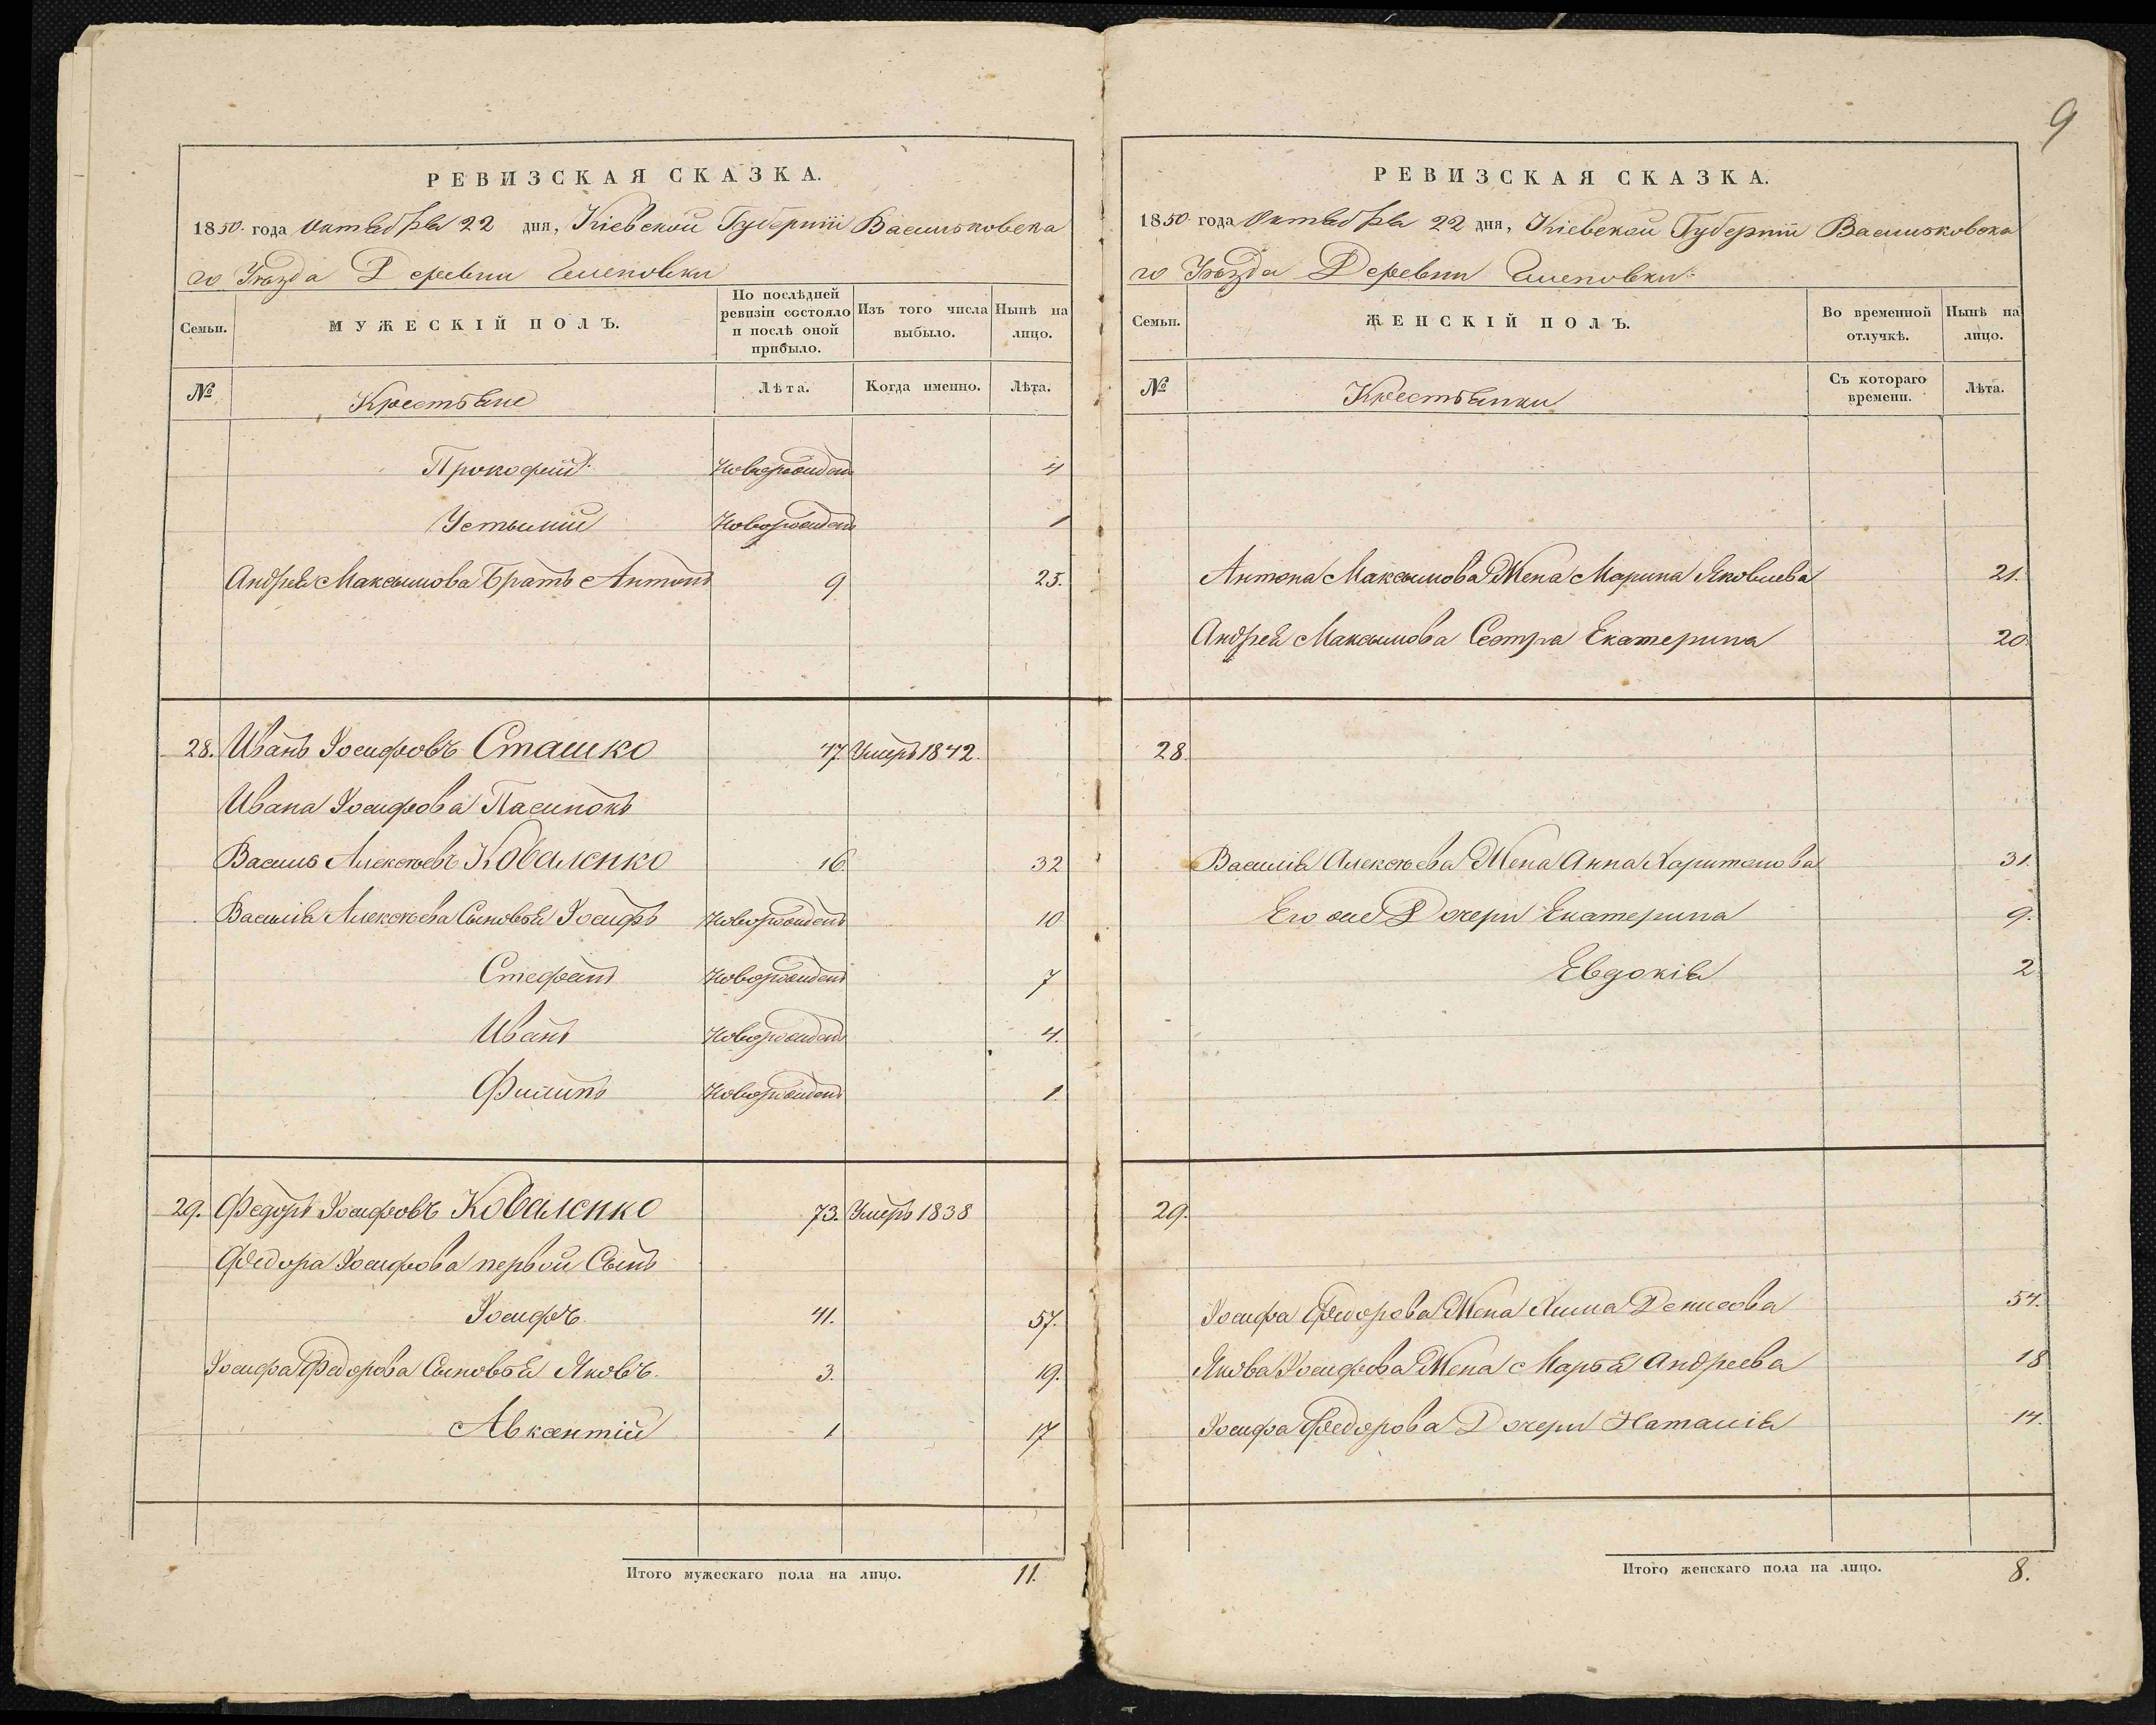 9
РЕВИЗСКАЯ СКАЗКА.
1850 года Октября 22 дня, Кіевской Губерніи Васильковска
го Уѣзда Деревни
Семьи.
МУЖЕСКІЙ ПОЛЪ.
По послѣдней ревизіи состояло и послѣ оной прибыло.
Изъ того числа выбыло.
Нынѣ на лицо.
№
Крестьяне
Лѣта.
Когда именно.
Лѣта.
Прокофій Новорожденъ 4
Устыній Новорожденъ 1
Андрея Максимова Братъ Антонъ 9 25.
28. Иванъ Іосифовъ Сташко 47. Умеръ 1842.
Ивана Іосифова Пасинокъ
Василь Алексѣевъ Коваленко 16. 32
Василія Алексѣева Сыновья Іосифъ Новорожденъ 10
Стефанъ Новорожденъ 7
Иванъ Новорожденъ 4.
Филипъ Новорожденъ 1.
29. Федоръ Іосифовъ Коваленко 73. Умеръ 1838
Федора Іосифова первой Сынъ
Іосифъ 41. 57.
Іосифа Федорова Сыновья Яковъ. 3. 19.
Авксентій 1 17
Итого мужескаго пола на лицо. 11.
РЕВИЗСКАЯ СКАЗКА.
1850 года Октября 22 дня, Кіевской Губерніи Васильковска
го Уѣзда Деревни
Семьи.
ЖЕНСКІЙ ПОЛЪ.
Во временной отлучкѣ.
Нынѣ на лицо.
№
Крестьянки
Съ котораго времени.
Лѣта.
Антона Максимова Жена Марина Яковлева 21.
Андрея Максимова Сестра Екатерина 20.
28.
Василія Алексѣева Жена Анна Харитонова 31.
Его же Дочери Екатерина 9.
Евдокія 2
29.
Іосифа Федорова Жена Химa Денисова 54.
Якова Іосифова Жена Марья Андреева 18
Іосифа Федорова Дочери Наталія 14.
Итого женскаго пола на лицо. 8.